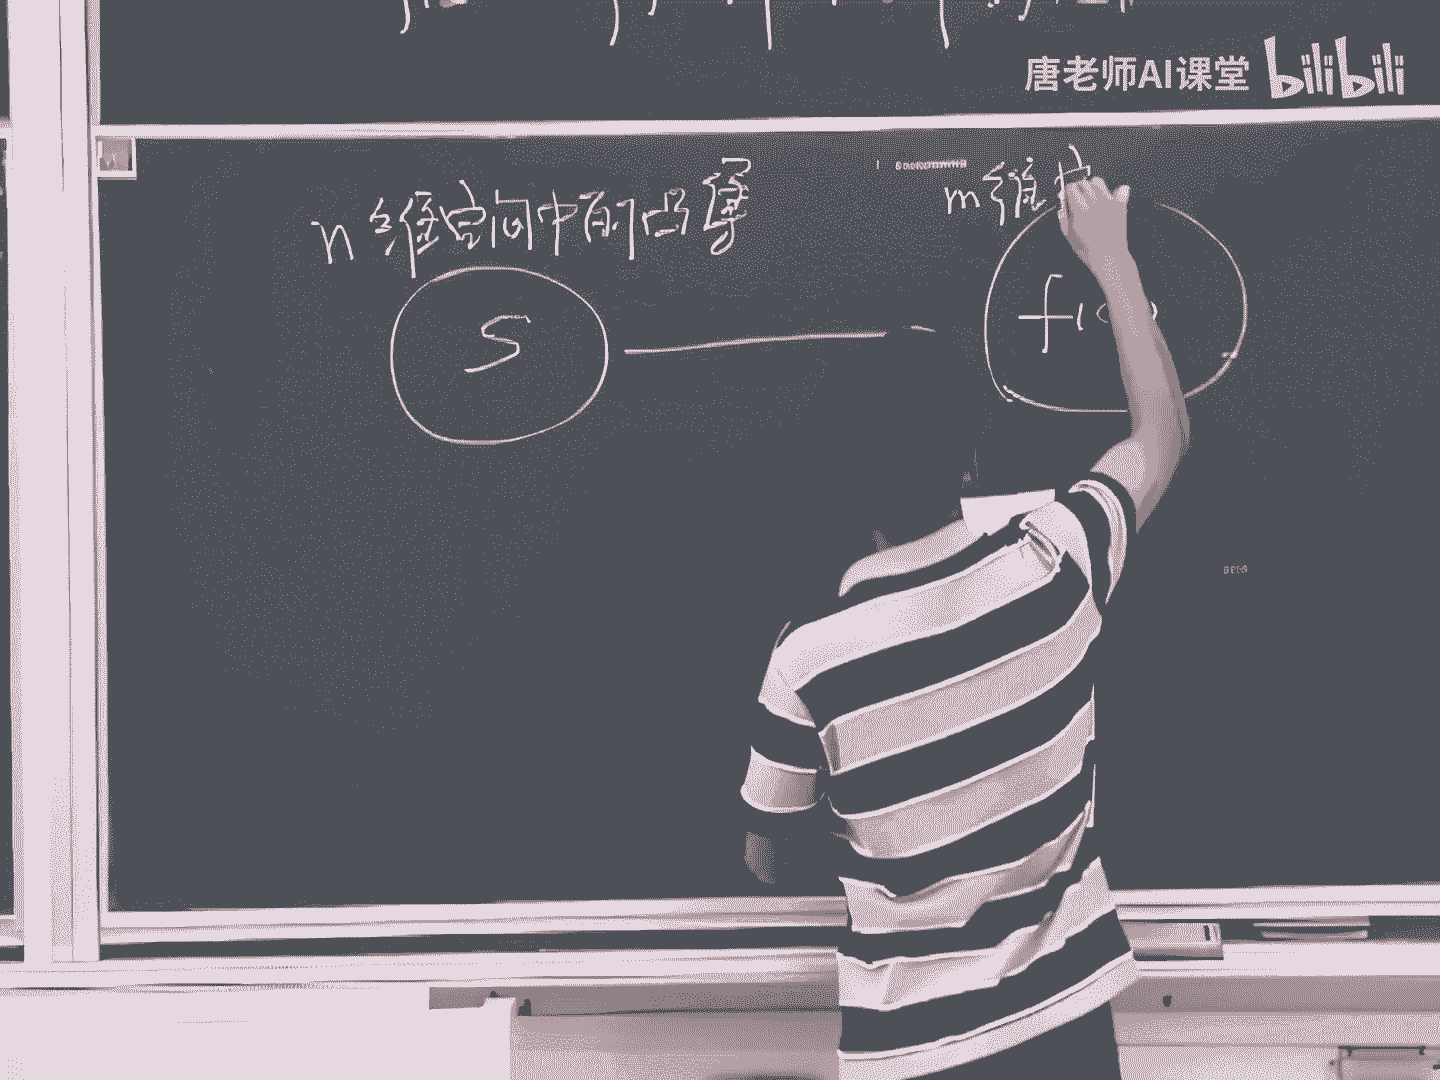 唐老师AI课堂 bilibili
n维空间中的凸集
m维
S
f(